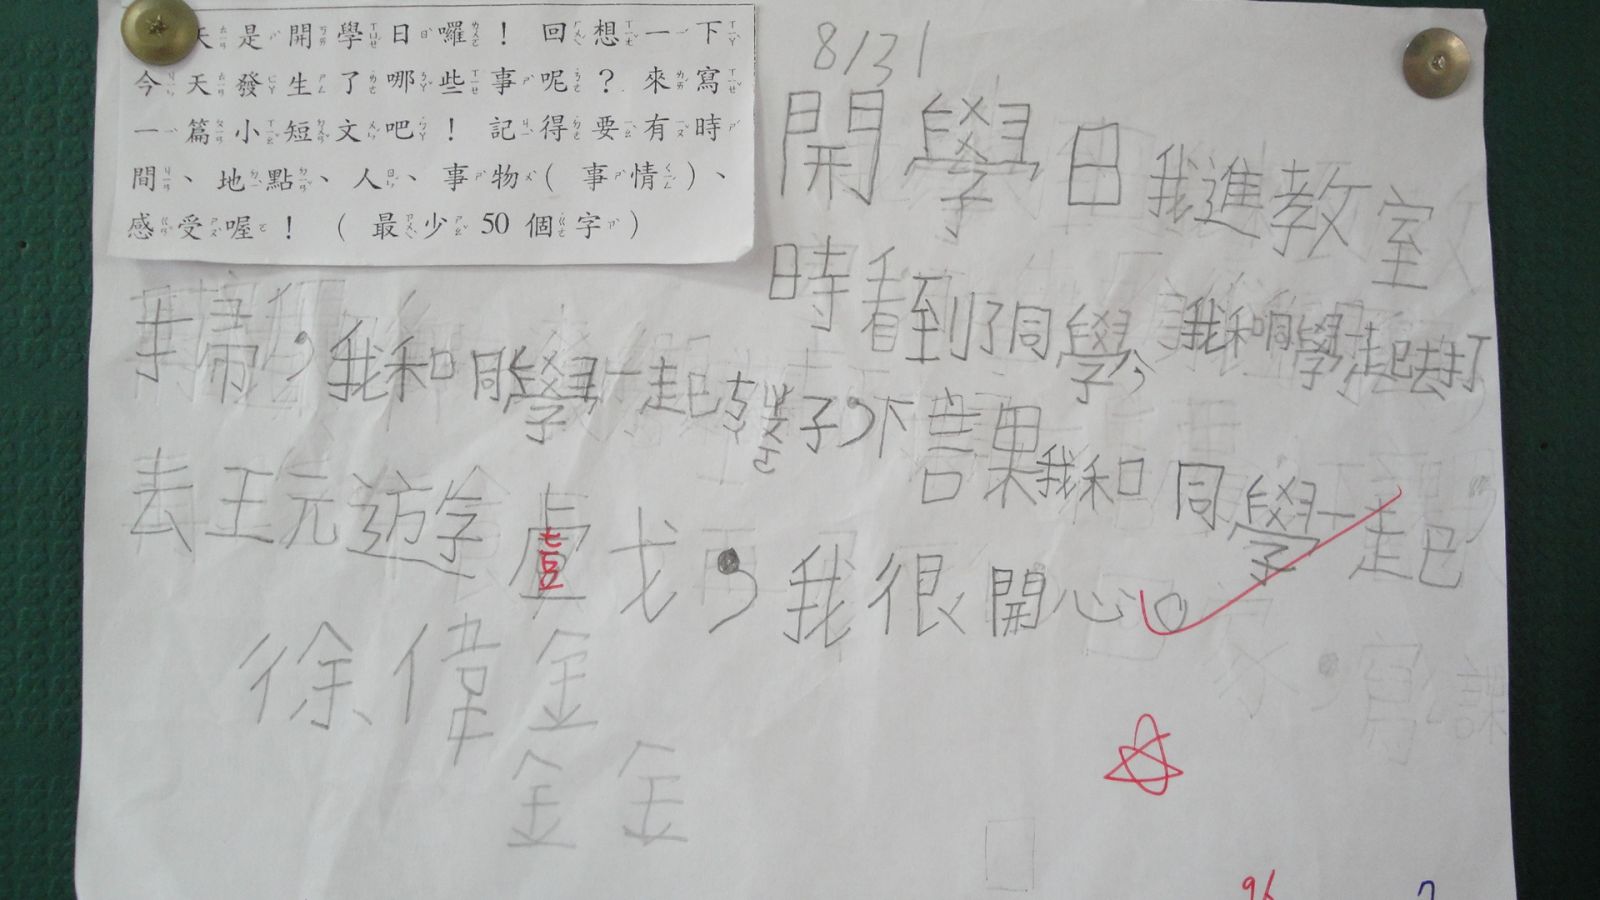 天是開學日囉！回想一下
今天發生了哪些事呢？來寫
一篇小短文吧！記得要有時
間、地點、人、事物（事情）、
感受喔！（最少50個字）
8/31
開學日我進教室
時看到了同學，我和同學一起去打
掃，我和同學一起子，下課我和同學一起
去玩遊戲，我很開心。
徐偉鑫